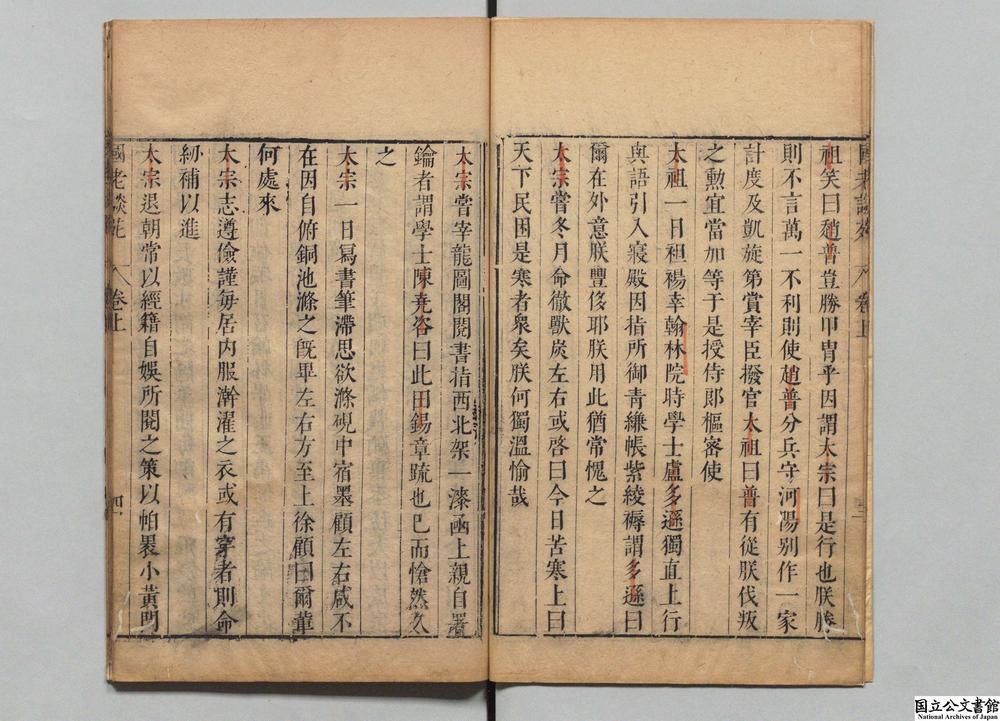 祖笑曰趙普豈勝甲冑乎因謂太宗曰是行也朕勝
則不言萬一不利則使趙普分兵守河陽别作一家
計度及凱旋第賞宰臣撥官太祖曰普有從朕伐叛
之勲宜當加等于是授侍郎樞密使
太祖一日袒裼幸翰林院時學士盧多遜獨直上行
與語引入寢殿因指所御青縑帳紫綾褥謂多遜曰
爾在外意朕豐侈耶朕用此猶常愧之
太宗嘗冬月命徹獸炭左右或啓曰今日苦寒上曰
天下民困是寒者衆矣朕何獨溫愉哉
國老談苑 卷上 三
太宗嘗幸龍圖閣閱書指西北架一漆函上親自署
鑰者謂學士陳堯咨曰此田錫章疏也已而愴然久
之
太宗一日寫書筆滯思欲滌硯中宿墨顧左右咸不
在因自俯銅池滌之旣畢左右方至上徐顧曰爾輩
何處來
太宗志遵儉謹每居内服澣濯之衣或有穿者則命
紉補以進
太宗退朝常以經籍自娛所閱之策以帕裹小黄門
國老談苑 卷上 四
国立公文書館
National Archives of Japan